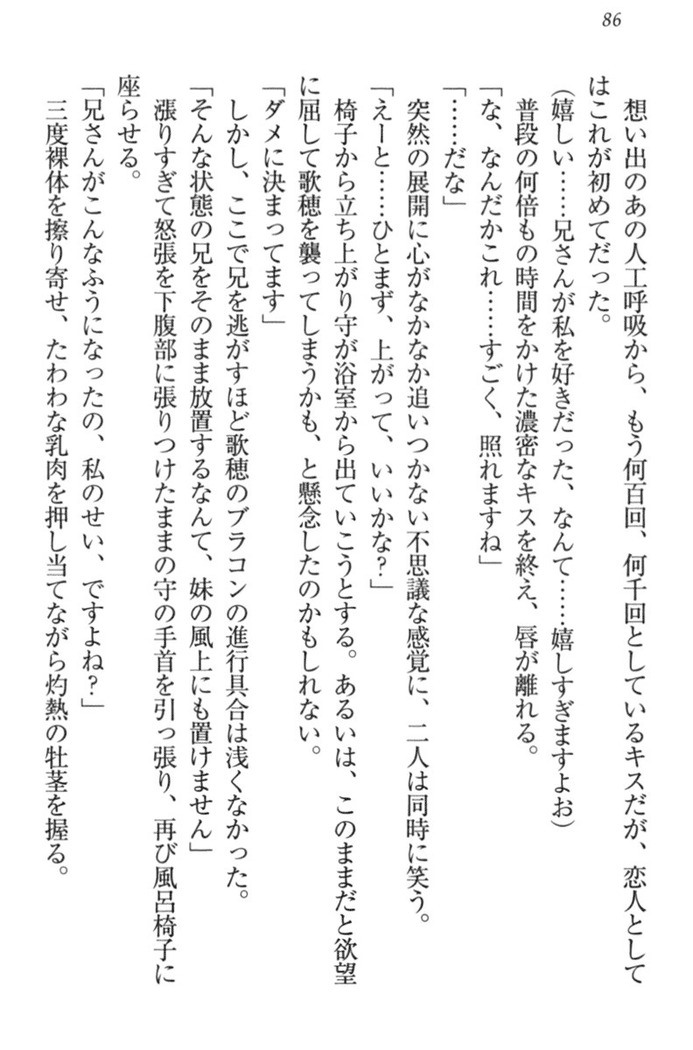 86
想い出のあの人工呼吸から、もう何百回、何千回としているキスだが、恋人として
はこれが初めてだった。
(嬉しい……兄さんが私を好きだった、なんて……嬉しすぎますよお)
普段の何倍もの時間をかけた濃密なキスを終え、唇が離れる。
「な、なんだかこれ……すごく、照れますね」
「……だな」
突然の展開に心がなかなか追いつかない不思議な感覚に、二人は同時に笑う。
「えーと……ひとまず、上がって、いいかな？」
椅子から立ち上がり守が浴室から出ていこうとする。あるいは、このままだと欲望
に屈して歌穂を襲ってしまうかも、と懸念したのかもしれない。
「ダメに決まってます」
しかし、ここで兄を逃がすほど歌穂のブラコンの進行具合は浅くなかった。
「そんな状態の兄をそのまま放置するなんて、妹の風上にも置けません」
漲りすぎて怒張を下腹部に張りつけたままの守の手首を引っ張り、再び風呂椅子に
座らせる。
「兄さんがこんなふうになったの、私のせい、ですよね？」
三度裸体を擦り寄せ、たわわな乳肉を押し当てながら灼熱の牡茎を握る。